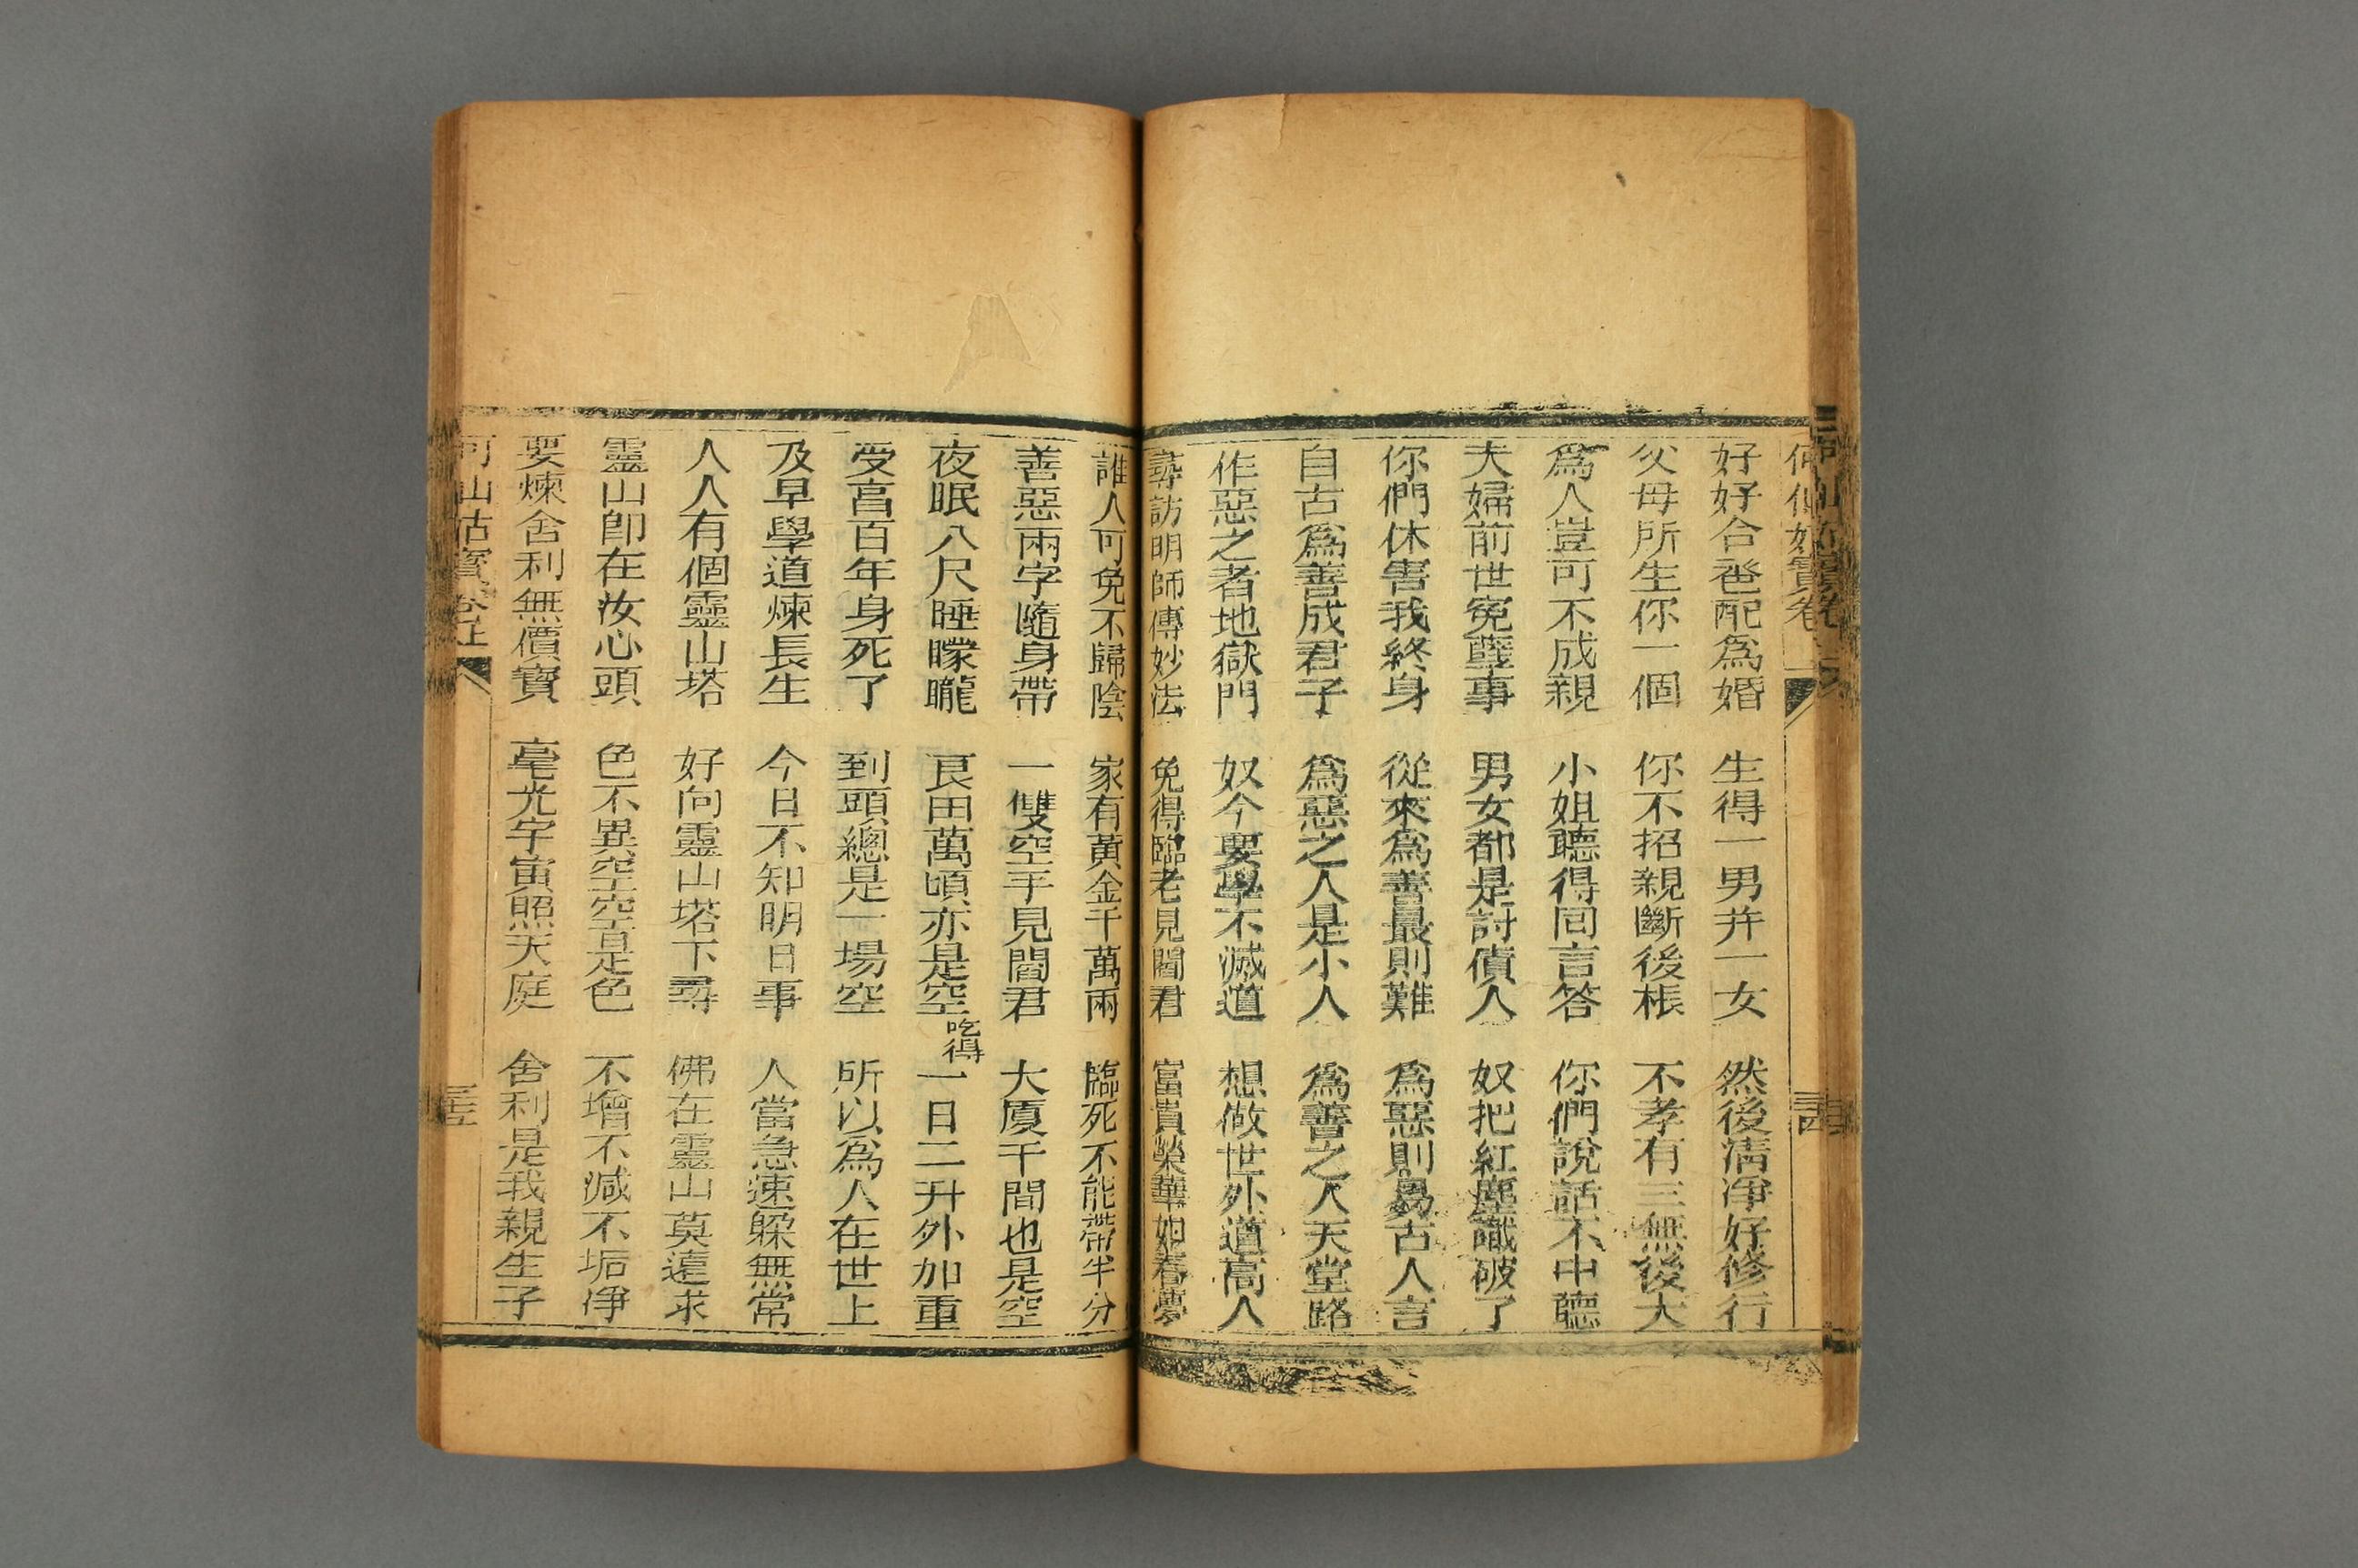 何仙姑寶卷
好好合卺配爲婚 生得一男并一女 然後淸凈好修行
父母所生你一個 你不招親斷後根 不孝有三無後大
爲人豈可不成親 小姐聽得囘言答 你們說話不中聽
夫婦前世寃孽事 男女都是討債人 奴把紅塵識破了
你們休害我終身 從來爲善最則難 爲惡則易古人言
自古爲善成君子 爲惡之人是小人 爲善之人天堂路
作惡之者地獄門 奴今要學不滅道 想做世外道高人
尋訪明師傳妙法 免得臨老見閻君 富貴榮華如春夢
誰人可免不歸陰 家有黃金千萬兩 臨死不能帶半分
善惡兩字隨身帶 一雙空手見閻君 大厦千間也是空
夜眠八尺睡矇矓 良田萬頃亦是空 吃得一日二升外加重
受亯百年身死了 到頭總是一場空 所以爲人在世上
及早學道煉長生 今日不知明日事 人當急速躱無常
人人有個靈山塔 好向靈山塔下尋 佛在靈山莫遠求
靈山卽在汝心頭 色不異空空是色 不增不減不垢凈
要煉舍利無價寶 毫光宇宙照天庭 舍利是我親生子
何仙姑寶卷上